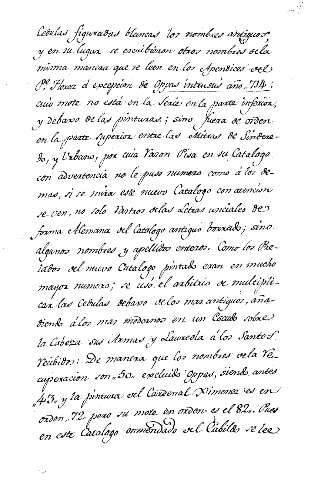 Cedulas figuradas blancas los nombres antiguos,
y en su lugar se escribieron otros nombres de la
misma manera que se leen en los Apendices del
Pe. Florez á excepcion de Oppas intrusus año 714:
cuio mote no está en la Serie en la parte inferior,
y debaxo de las pinturas; sino fuera de orden
en la parte superior entre las Mitras de Sindere-
do, y Urbano, por cuia razon Pisa en su Catalogo
con advertencia no le puso numero como á los de-
mas, si se mira este nuevo Catalogo con atencion
se ven, no solo rastros de las Letras unciales de
forma Alemana del Catalogo antiguo borrado; sino
algunos nombres y apellidos enteros. Como los Pre-
lados del nuevo Catalogo pintado eran en mucho
mayor numero; se usó el arbitrio de multipli-
car las Cedulas debaxo de los mas antiguos, aña-
diendo á los mas modernos en un Escudo sobre
la Cabeza sus Armas y Laureola á los Santos
Recibidos: De manera que los nombres de la Re-
cuperacion son 50 excluido Oppas, siendo antes
43, y la pintura del Cardenal Ximenez es en
orden 72 pero su mote en orden es el 82. Pues
en este Catalogo enmendado del Cabildo se lee